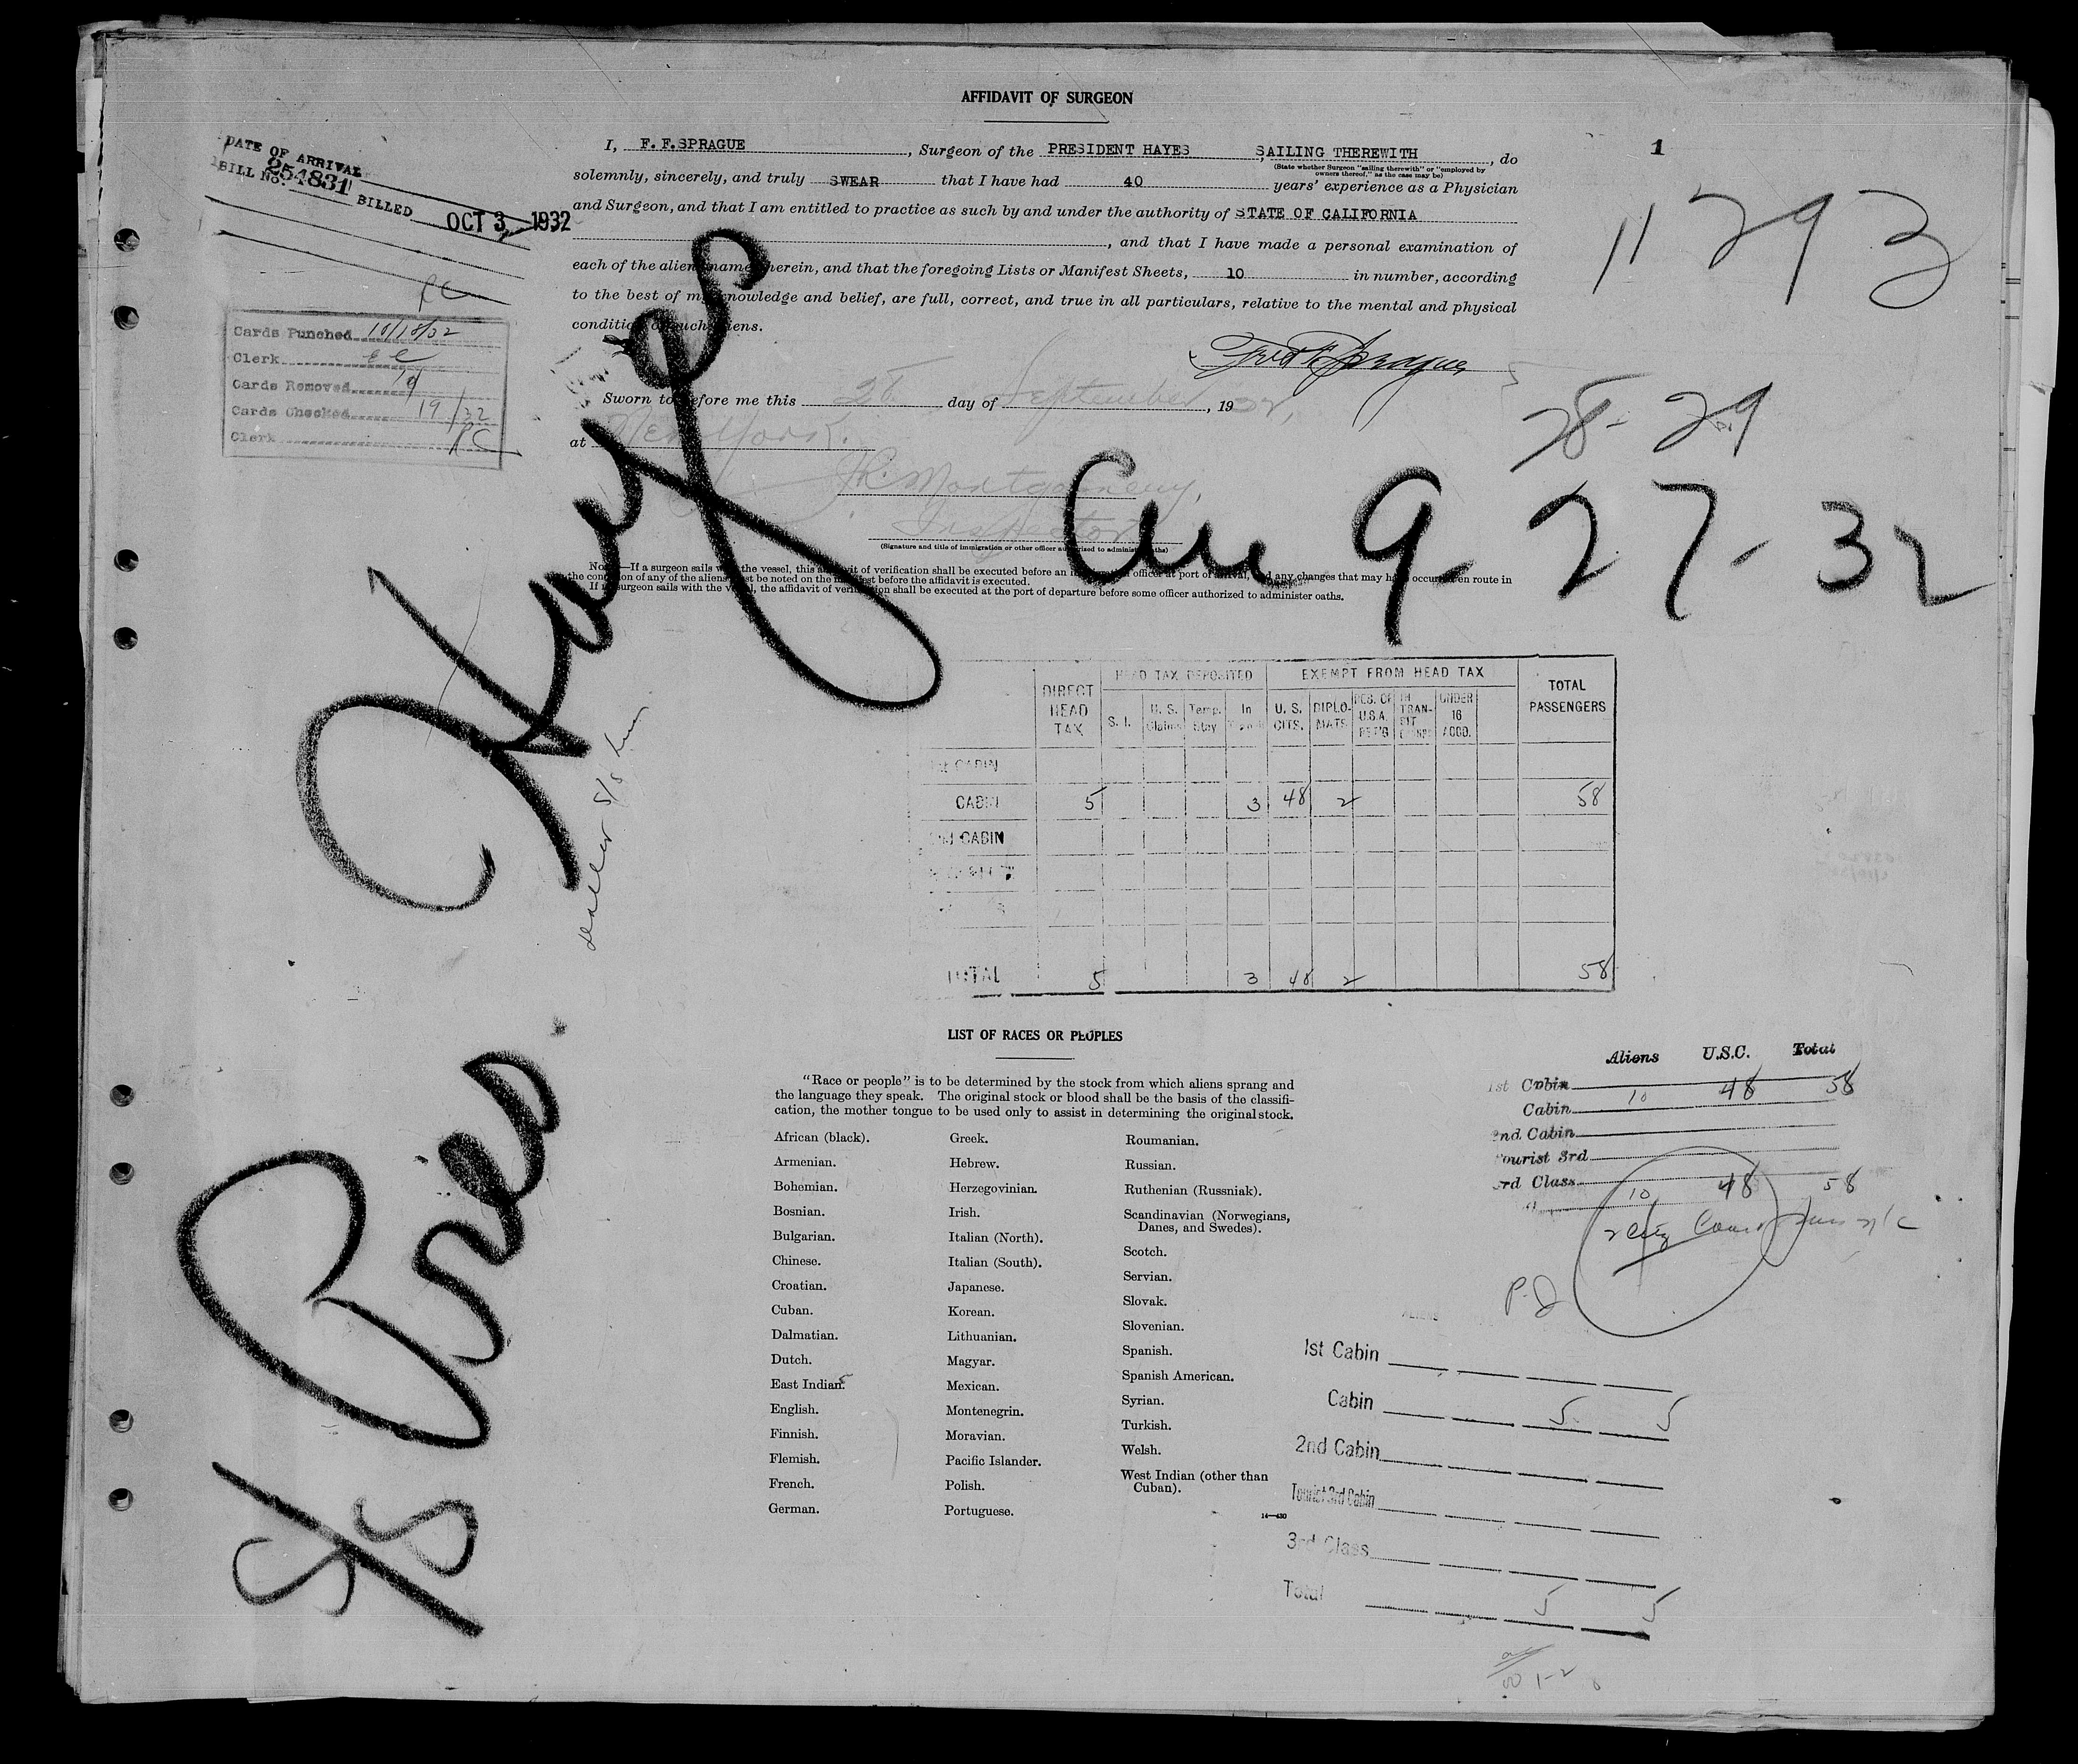 AFFIDAVIT OF SURGEON
1
DATE OF ARRIVAL
BILL No. 254831
BILLED OCT 3 1932
I, F. F. SPRAGUE, Surgeon of the PRESIDENT HAYES, SAILING THEREWITH, do
(State whether Surgeon "sailing therewith" or "employed by
owners thereof," as the case may be)
solemnly, sincerely, and truly SWEAR that I have had 40 years' experience as a Physician
and Surgeon, and that I am entitled to practice as such by and under the authority of STATE OF CALIFORNIA
, and that I have made a personal examination of
each of the aliens named herein, and that the foregoing Lists or Manifest Sheets, 10 in number, according
to the best of my knowledge and belief, are full, correct, and true in all particulars, relative to the mental and physical
condition of such aliens.
11293
Cards Punched 10/18/32
Clerk
Cards Removed
Cards Checked 19/32
Clerk
Fred F Sprague
Sworn to before me this day of September, 1932,
at New York.
28-29
Montgomery,
Inspector
(Signature and title of immigration or other officer authorized to administer oaths)
9-27-32
NOTE.—If a surgeon sails with the vessel, this affidavit of verification shall be executed before an officer at port of arrival, and any changes that may have occurred en route in
the condition of any of the aliens must be noted on the manifest before the affidavit is executed.
If surgeon sails with the vessel, the affidavit of verification shall be executed at the port of departure before some officer authorized to administer oaths.
S/S Pres. Hayes
DIRECT HEAD TAX
HEAD TAX DEPOSITED
EXEMPT FROM HEAD TAX
TOTAL PASSENGERS
S. I. U. S. Claims Temp. Stay In U. S. CITS. DIPLO-MATS RES. OF U.S.A. RET'G IN TRAN-SIT UNDER 16 ACCD.
1st CABIN
CABIN 5 3 48 2 58
2nd CABIN
TOTAL 5 3 48 2 58
LIST OF RACES OR PEOPLES
"Race or people" is to be determined by the stock from which aliens sprang and
the language they speak. The original stock or blood shall be the basis of the classifi-
cation, the mother tongue to be used only to assist in determining the original stock.
African (black).
Armenian.
Bohemian.
Bosnian.
Bulgarian.
Chinese.
Croatian.
Cuban.
Dalmatian.
Dutch.
East Indian.
English.
Finnish.
Flemish.
French.
German.
Greek.
Hebrew.
Herzegovinian.
Irish.
Italian (North).
Italian (South).
Japanese.
Korean.
Lithuanian.
Magyar.
Mexican.
Montenegrin.
Moravian.
Pacific Islander.
Polish.
Portuguese.
Roumanian.
Russian.
Ruthenian (Russniak).
Scandinavian (Norwegians,
Danes, and Swedes).
Scotch.
Servian.
Slovak.
Slovenian.
Spanish.
Spanish American.
Syrian.
Turkish.
Welsh.
West Indian (other than
Cuban).
14—430
Aliens U.S.C. Total
1st Cabin
Cabin 10 48 58
2nd Cabin
Tourist 3rd
3rd Class
10 48 58
ALIENS
1st Cabin
Cabin 5 5
2nd Cabin
Tourist 3rd Cabin
3rd Class
Total 5 5